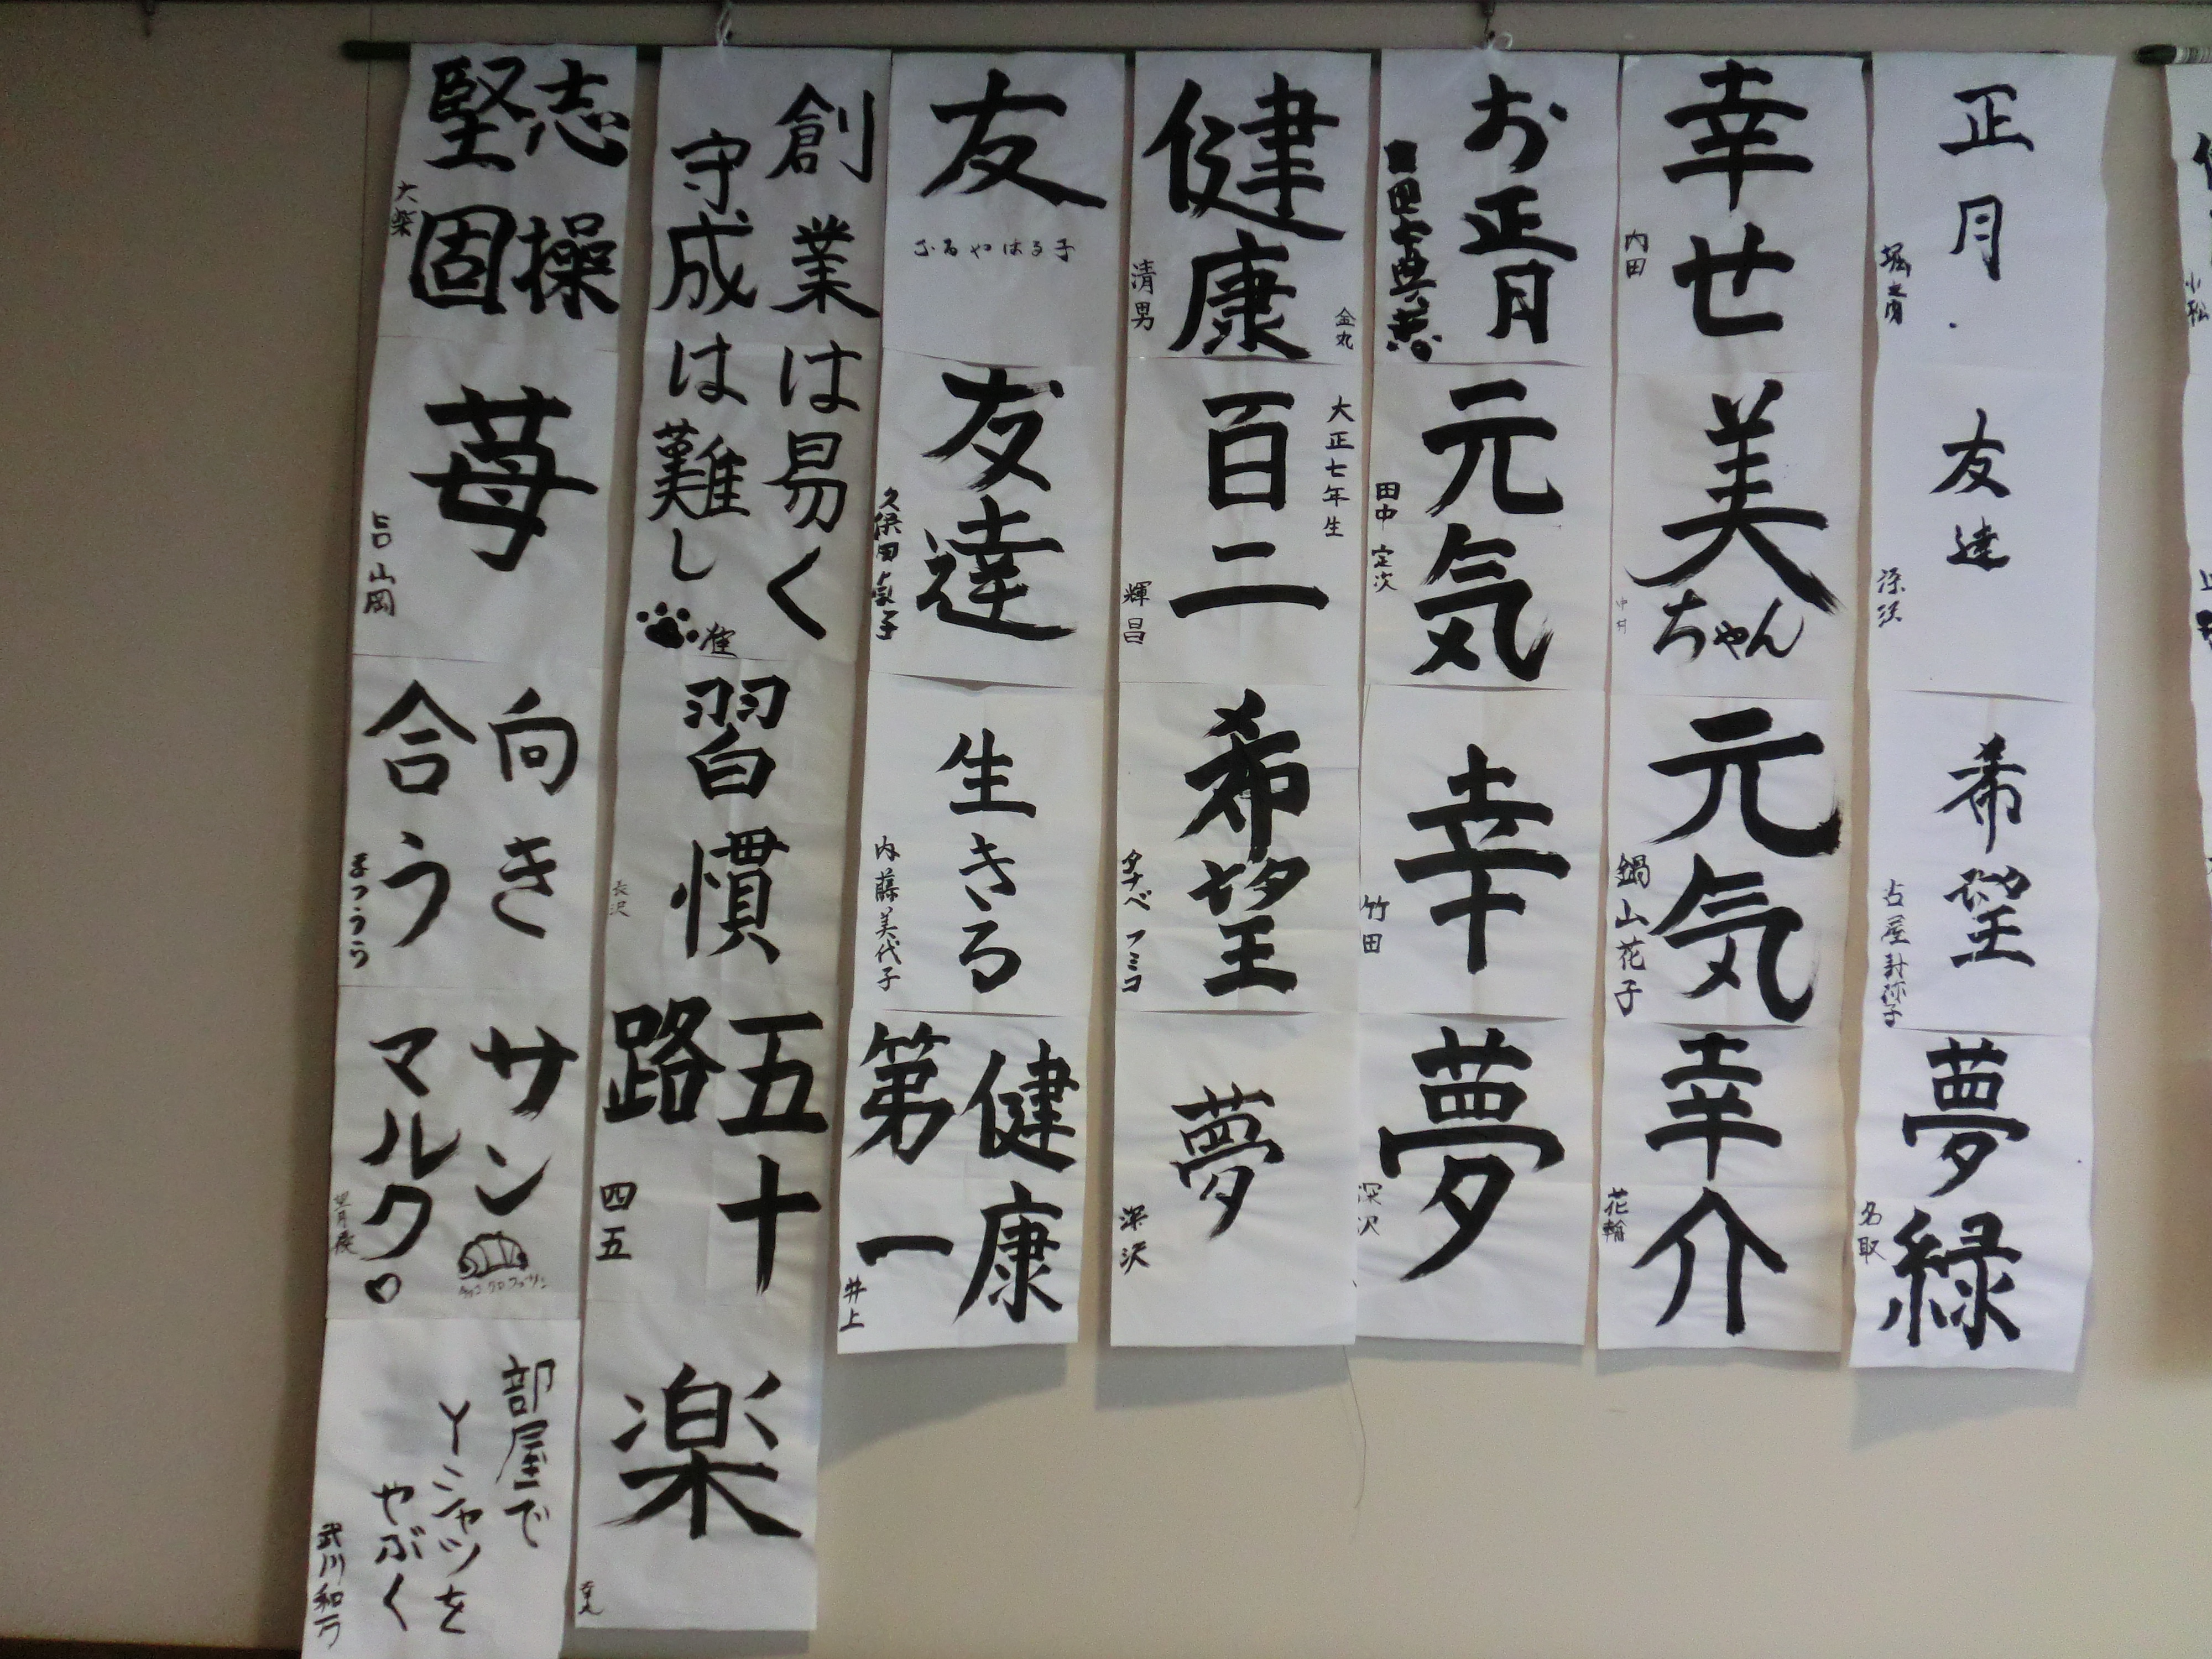 正月
友達
深沢
希望
夢
緑
名取
幸世
内田
美
ちゃん
中村
元気
鍋山花子
幸介
花輪
お正月
元気
田中 定次
幸
竹田
夢
深沢
健康
金丸
清男
大正七年生
百二
輝昌
希望
タナベ フミコ
夢
深沢
友
ふるやはる子
友達
生きる
内藤美代子
健康
第一
井上
創業は易く
守成は難し
習慣
長沢
五十
路
四五
楽
志操
堅固
大柴
苺
山岡
向き
合う
まつうら
サン
マルク♡
部屋で
Yシャツを
やぶく
小松